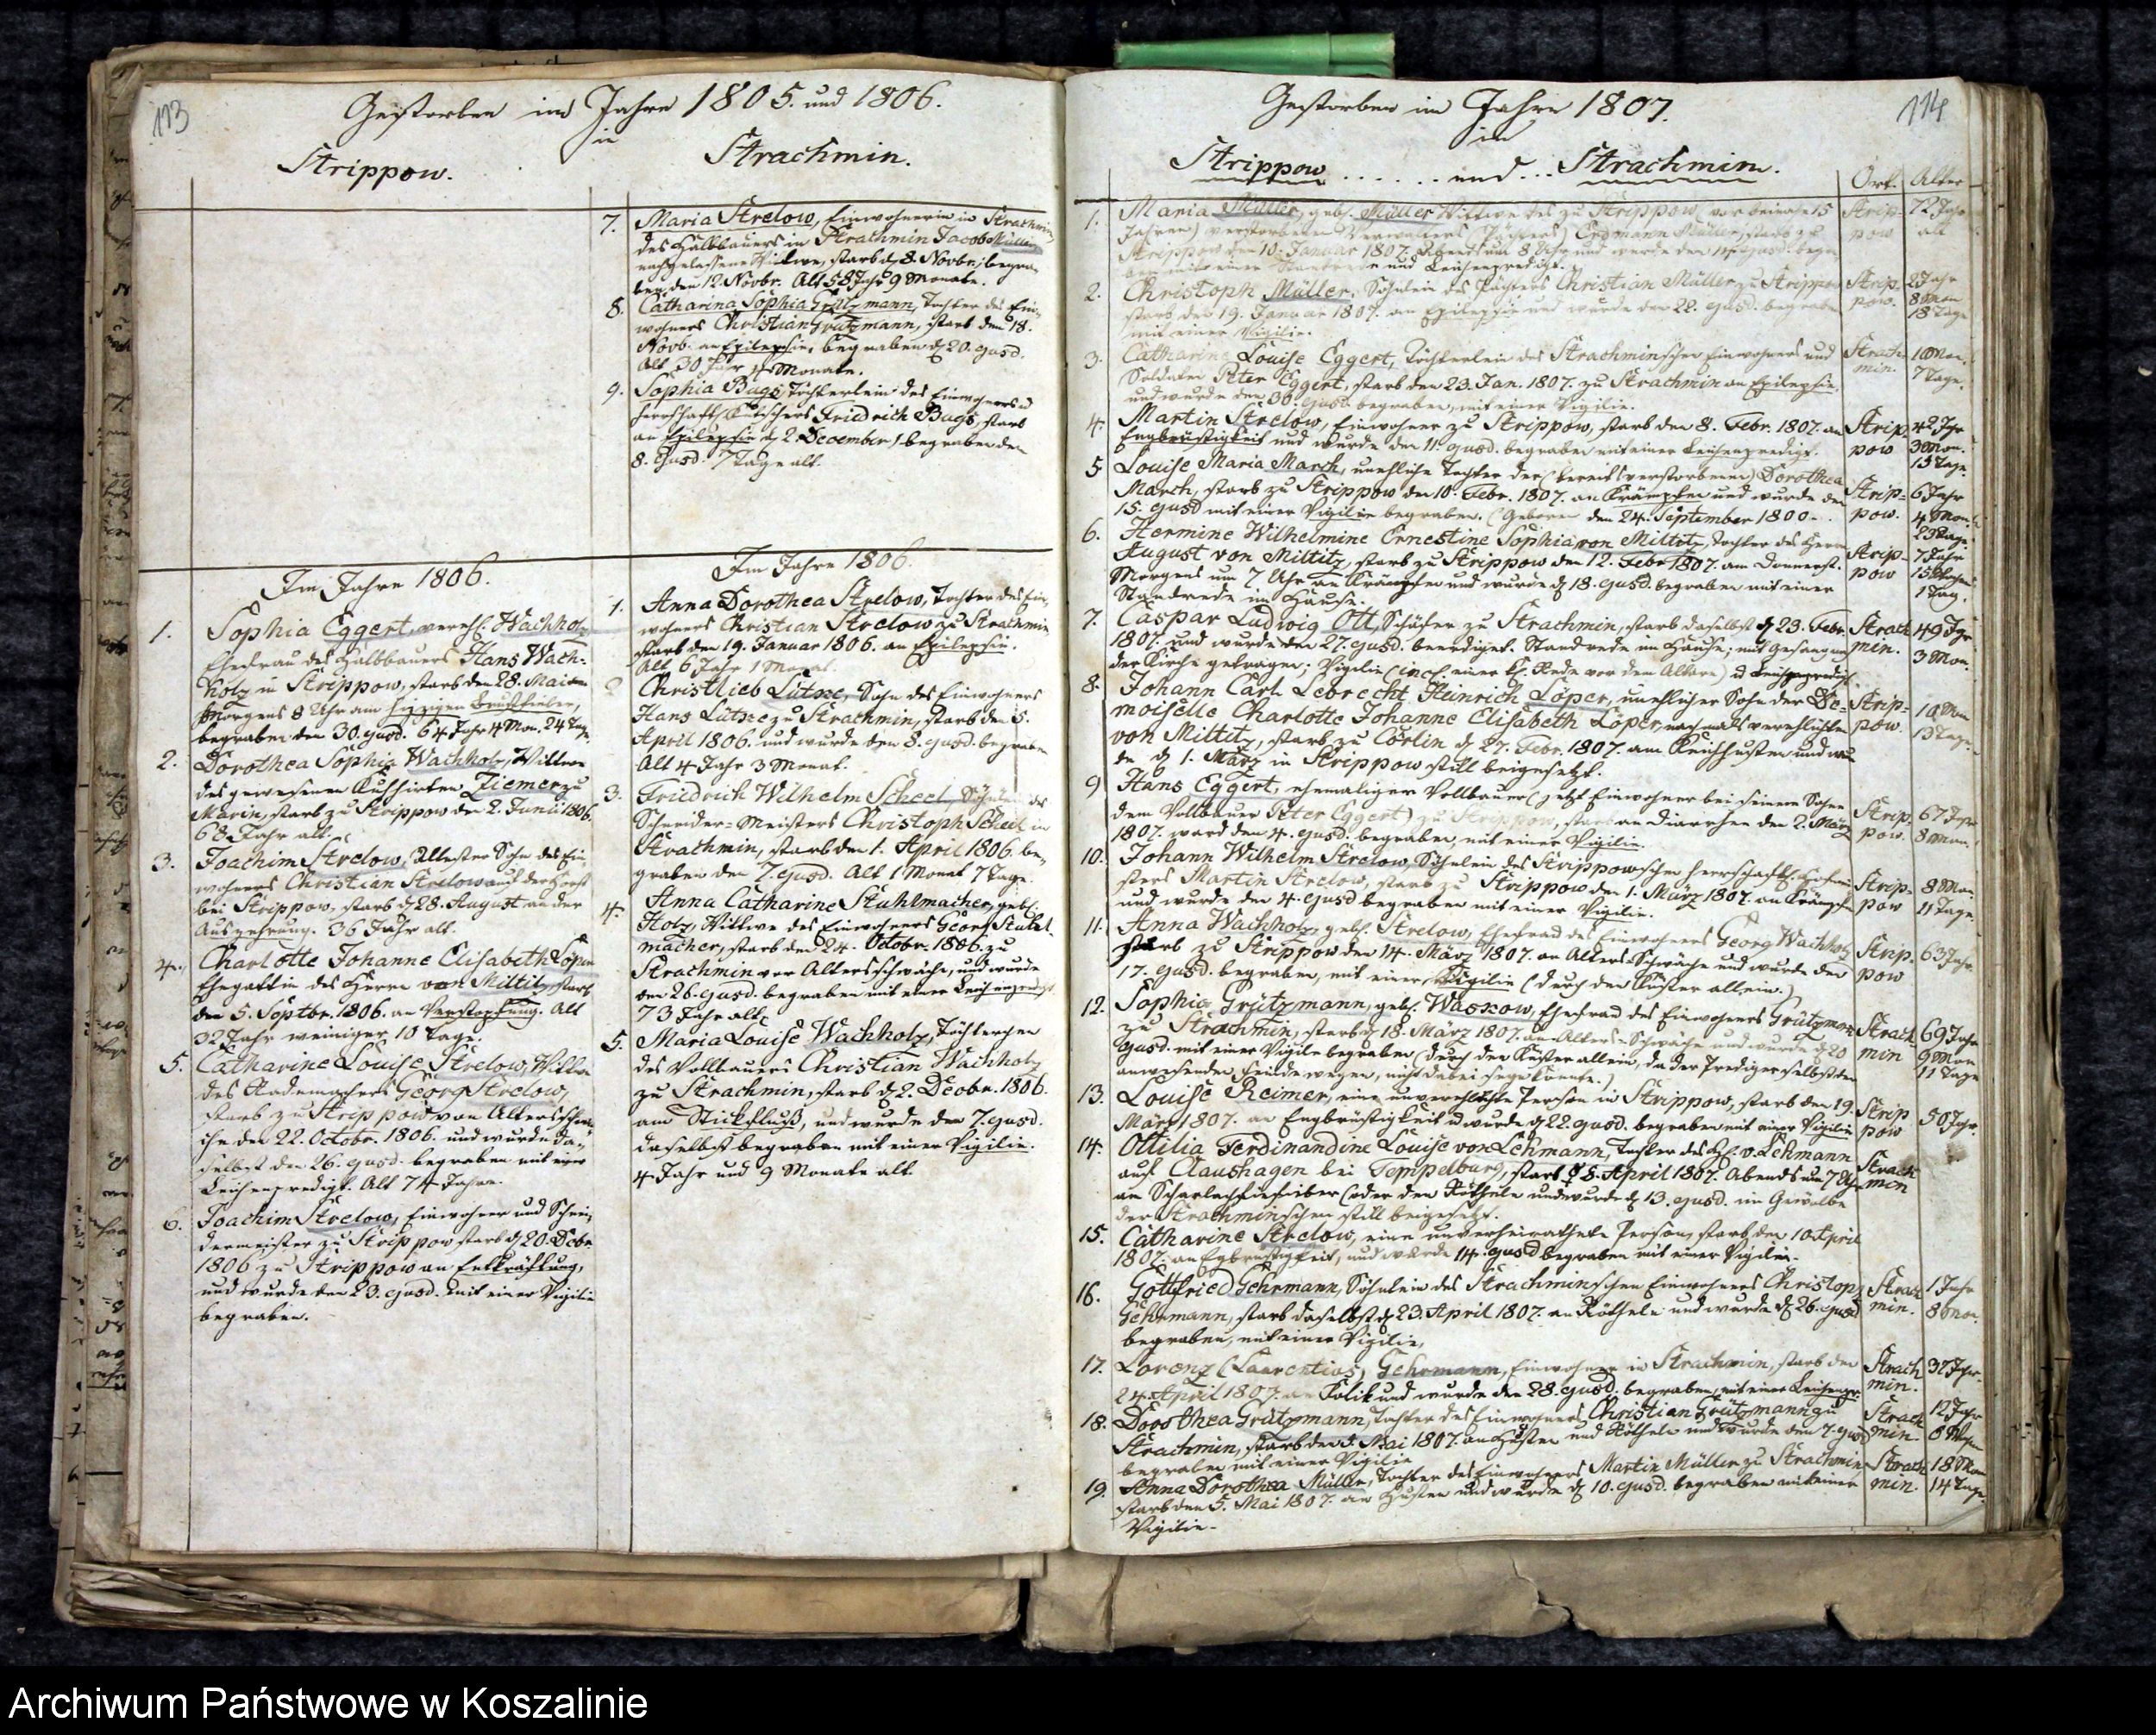 113
Gestorben im Jahre 1805. und 1806.
in
Strippow.
Strachmin.
7. Maria Strelow, Einwohnerin in Strachmin,
des Halbbauers in Strachmin Jacob Müller
nachgelassene Wittwe, starb d. 8. Novbr. begra-
ben den 12. Novbr. Alt 58 Jahr 9 Monate.
8. Catharina Sophia Grützmann, Tochter des Ein-
wohners Christian Grützmann, starb den 18.
Novb. an Epilepsie, begraben d. 20. ejusd.
Alt 30 Jahr 4 Monate.
9. Sophia Bugs Töchterlein des Einwohners u
herrschaftl. Kutschers Friedrich Bugs, starb
an Epilepsie d. 2. December, begraben den
8. ejusd. 7 Tage alt.
Im Jahre 1806.
1. Sophia Eggert, verehl. Wachholz,
Ehefrau des Halbbauers Hans Wach-
holz in Strippow, starb den 28. Mai
Morgens 8 Uhr am hitzigen Brustfieber,
begraben den 30. ejusd. 64 Jahr 4 Mon. 24 Tage.
2. Dorothea Sophia Wachholz, Wittwe
des gewesenen Kuhhirten Ziemer zu
Marin, starb zu Strippow den 2. Junii 1806.
68 Jahr alt.
3. Joachim Strelow, ältester Sohn des Ein-
wohners Christian Strelow auf der Horst
bei Strippow, starb d. 28. August an der
Auszehrung. 36 Jahr alt.
4. Charlotte Johanne Elisabeth Löper
Ehegattin des Herrn von Miltitz, starb
den 5. Septbr. 1806. an Verstopfung. Alt
32 Jahr weniger 10 Tage.
5. Catharine Louise Strelow, Wittwe
des Rademachers Georg Strelow,
starb zu Strippow von Altersschwä-
che den 22. Octobr. 1806. und wurde da-
selbst den 26. ejusd. begraben mit einer
Leichenpredigt. Alt 74 Jahre.
6. Joachim Strelow, Einwohner und Schnei-
dermeister zu Strippow starb d. 20. Debr.
1806 zu Strippow an Entkräftung,
und wurde den 23. ejusd. mit einer Vigilie
begraben.
Im Jahre 1806.
1. Anna Dorothea Strelow, Tochter des Ein-
wohners Christian Strelow zu Strachmin
starb den 19. Januar 1806. an Epilepsie.
Alt 6 Jahr 1 Monat.
2. Christlieb Lütze, Sohn des Einwohners
Hans Lütze zu Strachmin, starb den 5.
April 1806. und wurde den 8. ejusd. begraben
Alt 4 Jahr 3 Monat.
3. Friedrich Wilhelm Scheel, Söhnlein des
Schneider-Meisters Christoph Scheel in
Strachmin, starb den 1. April 1806. be-
graben den 7. ejusd. Alt 1 Monat 7 Tage.
4. Anna Catharine Stuhlmacher, geb.
Holz, Wittwe des Einwohners Georg Stuhl-
macher, starb den 24. Octobr. 1806. zu
Strachmin vor Altersschwäche, und wurde
den 26. ejusd. begraben mit einer Leichenpredigt
73 Jahr alt.
5. Maria Louise Wachholz, Töchterchen
des Vollbauers Christian Wachholz
zu Strachmin, starb d. 2. Decbr. 1806.
am Stickfluß, und wurde den 7. ejusd.
daselbst begraben mit einer Vigilie.
4 Jahr und 9 Monate alt
114
Gestorben im Jahre 1807.
in
Strippow ...... und ... Strachmin.
Ort. Alter
1. Maria Müller, geb. Müller Wittwe des zu Strippow (vor beinahe 15 Strip- 72 Jahr
Jahren) verstorbenen Verwalters (Pächters) Erdmann Müller, starb zu pow alt
Strippow den 10. Januar 1807. Abends um 8 Uhr und wurde den ejusd. begra-
ben mit einer Standrede und Leichenpredigt.
2. Christoph Müller, Söhnlein des Pächters Christian Müller zu Strippow Strip- 2 Jahr
starb den 19. Januar 1807. an Epilepsie und wurde den 22. ejusd. begraben pow. 8 Mon
mit einer Vigilie. 18 Tage
3. Catharine Louise Eggert, Töchterlein des Strachminschen Einwohners und Strach- 1 Mon.
Soldaten Peter Eggert, starb den 23. Jan. 1807. zu Strachmin an Epilepsie, min. 7 Tage.
und wurde den 30. ejusd. begraben, mit einer Vigilie.
4. Martin Strelow, Einwohner zu Strippow, starb den 8. Febr. 1807. an Strip- 42 Jhr
Engbrüstigkeit und wurde den 11. ejusd. begraben mit einer Leichenpredigt. pow 3 Mon.
13 Tage.
5 Louise Maria March, unehliche Tochter der (bereits verstorbenen) Dorothea
March, starb zu Strippow den 10. Febr. 1807. an Krämpfen und wurde den Strip- 6 Jahr
15. ejusd mit einer Vigilie begraben. (Geboren den 24. September 1800. pow. 4 Mon.
23 Tage
6. Hermine Wilhelmine Ernestine Sophia von Miltitz, Tochter des Herrn
August von Miltitz, starb zu Strippow den 12. Febr 1807. am Donnerst. Strip- 7 Jahr
Morgens um 7 Uhr an Krämpfen und wurde d. 18. ejusd. begraben mit einer pow
Standrede im Hause. 1 Tag.
7. Caspar Ludwig Ott, Schäfer zu Strachmin, starb daselbst d. 23. Febr. Strach 49 Jhr
1807. und wurde den 27. ejusd. beerdiget. Standrede im Hause; mit Gesang in min. 3 Mon.
der Kirche getragen; Vigilie (incl. einer kl. Rede vor dem Altare) u Leichenpredigt
8. Johann Carl Lebrecht Heinrich Löper, unehlicher Sohn der De- Strip-
moiselle Charlotte Johanne Elisabeth Löper, nachmals verehlichten pow. 10 Mon
von Miltitz, starb zu Cörlin d. 27. Febr. 1807. am Keichhusten und wur- 13 Tage.
de d. 1. März in Strippow still beigesetzt.
9) Hans Eggert, ehemaliger Vollbauer (jetzt Einwohner bei seinem Sohne
dem Vollbauer Peter Eggert) zu Strippow, starb an Diarrhee den 2. März Strip. 67 Jhr
1807. ward den 4. ejusd. begraben, mit einer Vigilie. pow. 8 Mon.
10. Johann Wilhelm Strelow, Söhnlein des Strippowschen herrschaftl.
Martin Strelow, starb zu Strippow den 1. März 1807. an Krämpfen Strip- 8 Mon.
und wurde den 4. ejusd begraben mit einer Vigilie. pow 11 Tage.
11. Anna Wachholz, geb. Strelow, Ehefrau des Einwohners Georg Wachholz
starb zu Strippow den 14. März 1807. an Alters-Schwäche und wurde den Strip. 63 Jahr
17. ejusd. begraben, mit einer Vigilie (durch den Küster allein.) pow
12. Sophia Grützmann, geb. Waskow, Ehefrau des Einwohners Grützmann
zu Strachmin, starb d. 18. März 1807. an Alters-Schwäche und wurde d. 20 Strach 69 Jahr
ejusd. mit einer Vigilie begraben (durch den Küster allein, da der Prediger selbst der min 9 Mon
anwesenden Feinde wegen, nicht dabei seyn konnte.) 11 Tage
13. Louise Reimer, eine unverehlichte Person in Strippow, starb den 19. Strip 50 Jhr.
März 1807. an Engbrüstigkeit u wurde d. 22. ejusd. begraben mit einer Vigilie pow
14. Ottilia Ferdinandine Louise von Lehmann, Tochter des H. v. Lehmann
auf Claushagen bei Tempelburg, starb d. 8. April 1807. Abends um 7 Uhr Strach
am Scharlachfieber (oder den Rötheln und wurde d. 13. ejusd. im Gewölbe min
der Strachminschen still beigesetzt.
15. Catharine Strelow, eine unverheirathete Person, starb den 10 April
1807. an Egbrüstigkeit, und wurde 14. ejusd begraben mit einer Vigilie.
16. Gottfried Gehrmann, Söhnlein des Strachminschen Einwohners Christoph Strach 1 Jahr
Gehrmann, starb daselbst d. 23. April 1807. an Rötheln und wurde d. 26. ejusd min. 8 Mon.
begraben, mit einer Vigilie,
17. Lorenz (Laurentius) Gehrmann, Einwohner in Strachmin, starb den Strach 37 Jhr.
24. April 1807. an Kolik und wurde den 28. ejusd. begraben, mit einer Leichenpr. min.
18. Dorothea Grützmann, Tochter des Einwohners Christian Grützmann zu Strach 12 Jahr
Strachmin, starb den 5. Mai 1807. an Husten und Rötheln und wurde den 7. ejusd min.
begraben mit einer Vigilie
19. Anna Dorothea Müller, Tochter des Einwohners Martin Müller zu Strachmin Strach 18 Mon
starb den 5. Mai 1807. am Husten und wurde d. 10. ejusd. begraben mit einer min. 14 Tage.
Vigilie.
Archiwum Państwowe w Koszalinie